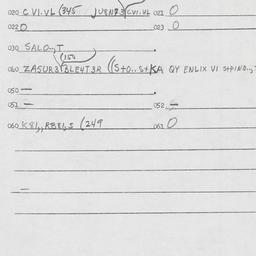 020 C VI.VL (345 JU8N23 CVI.VL 021 0
022 0 023 0
030 SALO.,T
(150
040 ZASUR3 BLE4T3R ((S+0..S+KA QY ENLIX VI S+PINO.,T
050 — 
051 — 052 —
060 K81,,RB81,S (249 061 0
—